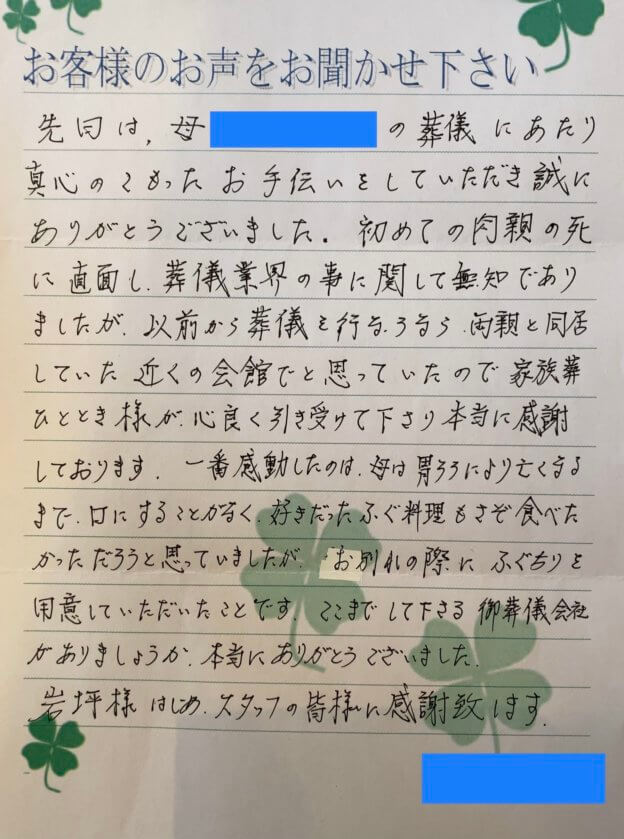 お客様のお声をお聞かせ下さい
先日は、母 の葬儀にあたり
真心のこもったお手伝いをしていただき誠に
ありがとうございました。初めての肉親の死
に直面し、葬儀業界の事に関して無知であり
ましたが、以前から葬儀を行なうなら、両親と同居
していた近くの会館でと思っていたので家族葬
ひととき様が、心良く引き受けて下さり本当に感謝
しております。一番感動したのは、母は胃ろうにより亡くなる
まで、口にすることがなく、好きだったふぐ料理もさぞ食べた
かっただろうと思っていましたが、お別れの際にふぐちりを
用意していただいたことです。ここまでして下さる御葬儀会社
がありましょうか、本当にありがとうございました。
岩坪様はじめ、スタッフの皆様に感謝致します。